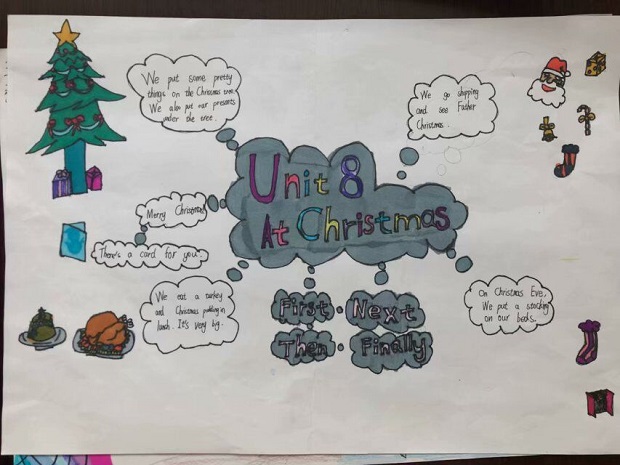 We put some pretty
things on the Christmas tree.
We also put our presents
under the tree.
We go shipping
and see Father
Christmas.
Unit 8
At Christmas
Merry Christmas!
There's a card for you.
We eat a turkey
and Christmas pudding in
lunsh. It's very big.
First. Next
Then. Finally
On Christmas Eve,
We put a stocking
on our beds.